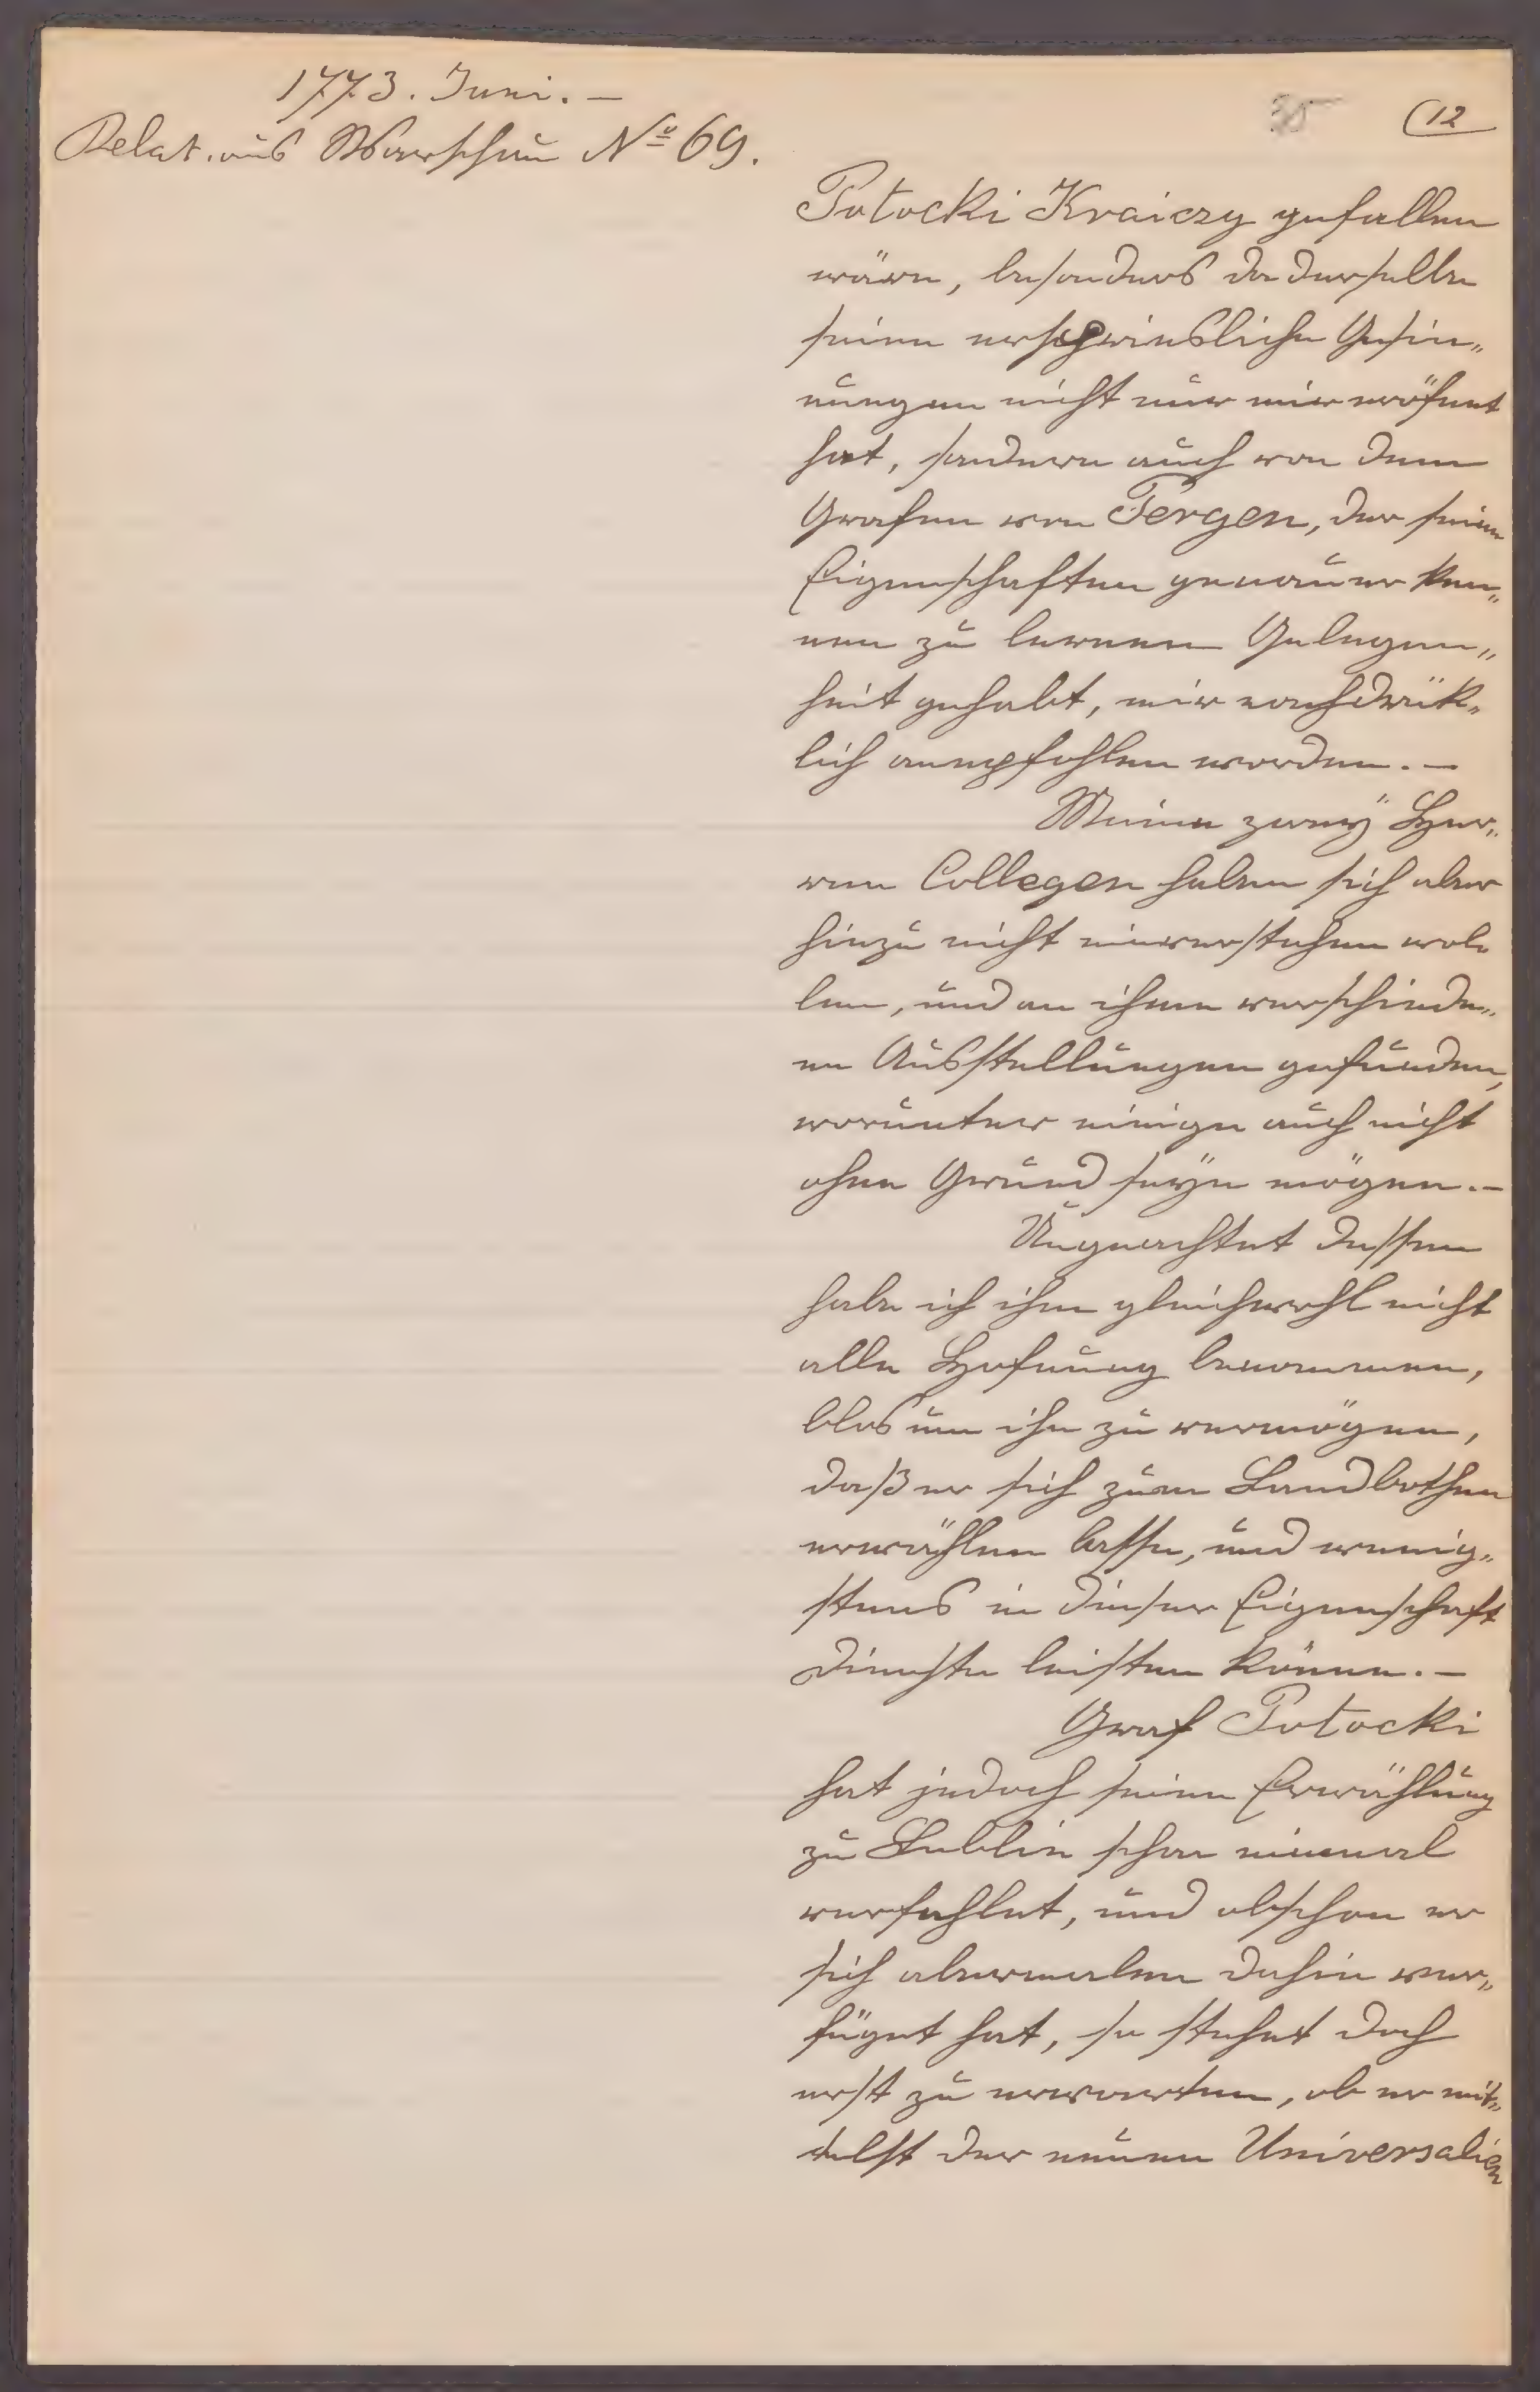 1773. Juni. —
Relat. aus Warschau Nº 69.
35
(12
Potocki Kraiczy gefallen
wäre, besonders da derselbe
seine erspriesliche Gesin„
nungen nicht nur mir eröfnet
hat, sondern auch von dem
Grafen von Pergen, der seine
Eigenschaften genauer ken„
nen zu lernen Gelegen„
heit gehabt, mir nachdrük„
lich anempfohlen worden. —
Meine zweÿ Her„
ren Collegen haben sich aber
hinzu nicht einverstehen wol„
len, und an ihme verschiede„
ne Ausstellungen gefunden,
worunter einige auch nicht
ohne Grund seÿn mögen. —
Ungeachtet dessen
habe ich ihm gleichwohl nicht
alle Hofnung benommen,
blos um ihn zu vermögen,
daß er sich zum Landbothen
erwählen lasse, und wenig„
stens in dieser Eigenschaft
Dienste leisten könne. —
Graf Potocki
hat jedoch seine Erwählung
zu Lublin schon einmal
verfehlet, und obschon er
sich abermalen dahin ver„
füget hat, so stehet doch
erst zu erwarten, ob er mit„
telst der neuen Universalien